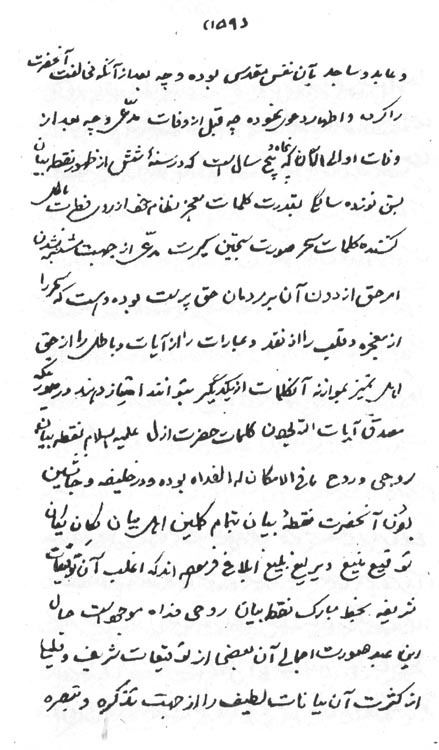 (۱۵۹)
و عابد و ساجد بآن نفس مقدسی بوده و چه بعد از آنکه مخالفت آنحضرت
را کرده و اظهار دعوی نموده چه قبل از وفات مدّعی و چه بعد از
وفات او الی الآن که پنجاه و پنج سال است که در سنهٔ شش از ظهور نقطه بیان
بسن نوزده سالگی بقدرت کلمات معجز نظام خود از روی فطرت باطل
کننده کلمات سحر صورت سجّین سیرت مدّعی از جهت مشتبه نشدن
امر حق از دون آن بر مردمان حق پرست بوده و هست که سحر را
از معجزه و قلب را از نقد و عبارات را از آیات و باطل را از حق
اهل تمیز بموازنه آنکلمات از یکدیگر بتوانند امتیاز دهند در صورتیکه
مصدق آیات الله بودن کلمات حضرت ازل علیه السلام نقطه بیان
روحی و روح ما فی الامکان له الفداه بوده و در خلیفه و جانشین
بودن آنحضرت نقطهٔ بیان بتمام کاملین اهل بیان کان یکان
توقیع بلیغ و یرلیغ بلیغ ابلاغ فرموده اند که اغلب آن توقیعات
شریفه بخط مبارک نقطه بیان روحی فداه موجود است حال
این عبد صورت اجمالی آن بعضی از توقیعات شریف و قلیلی
از کثرت آن بیانات لطیف را از جهت تذکره و تبصره